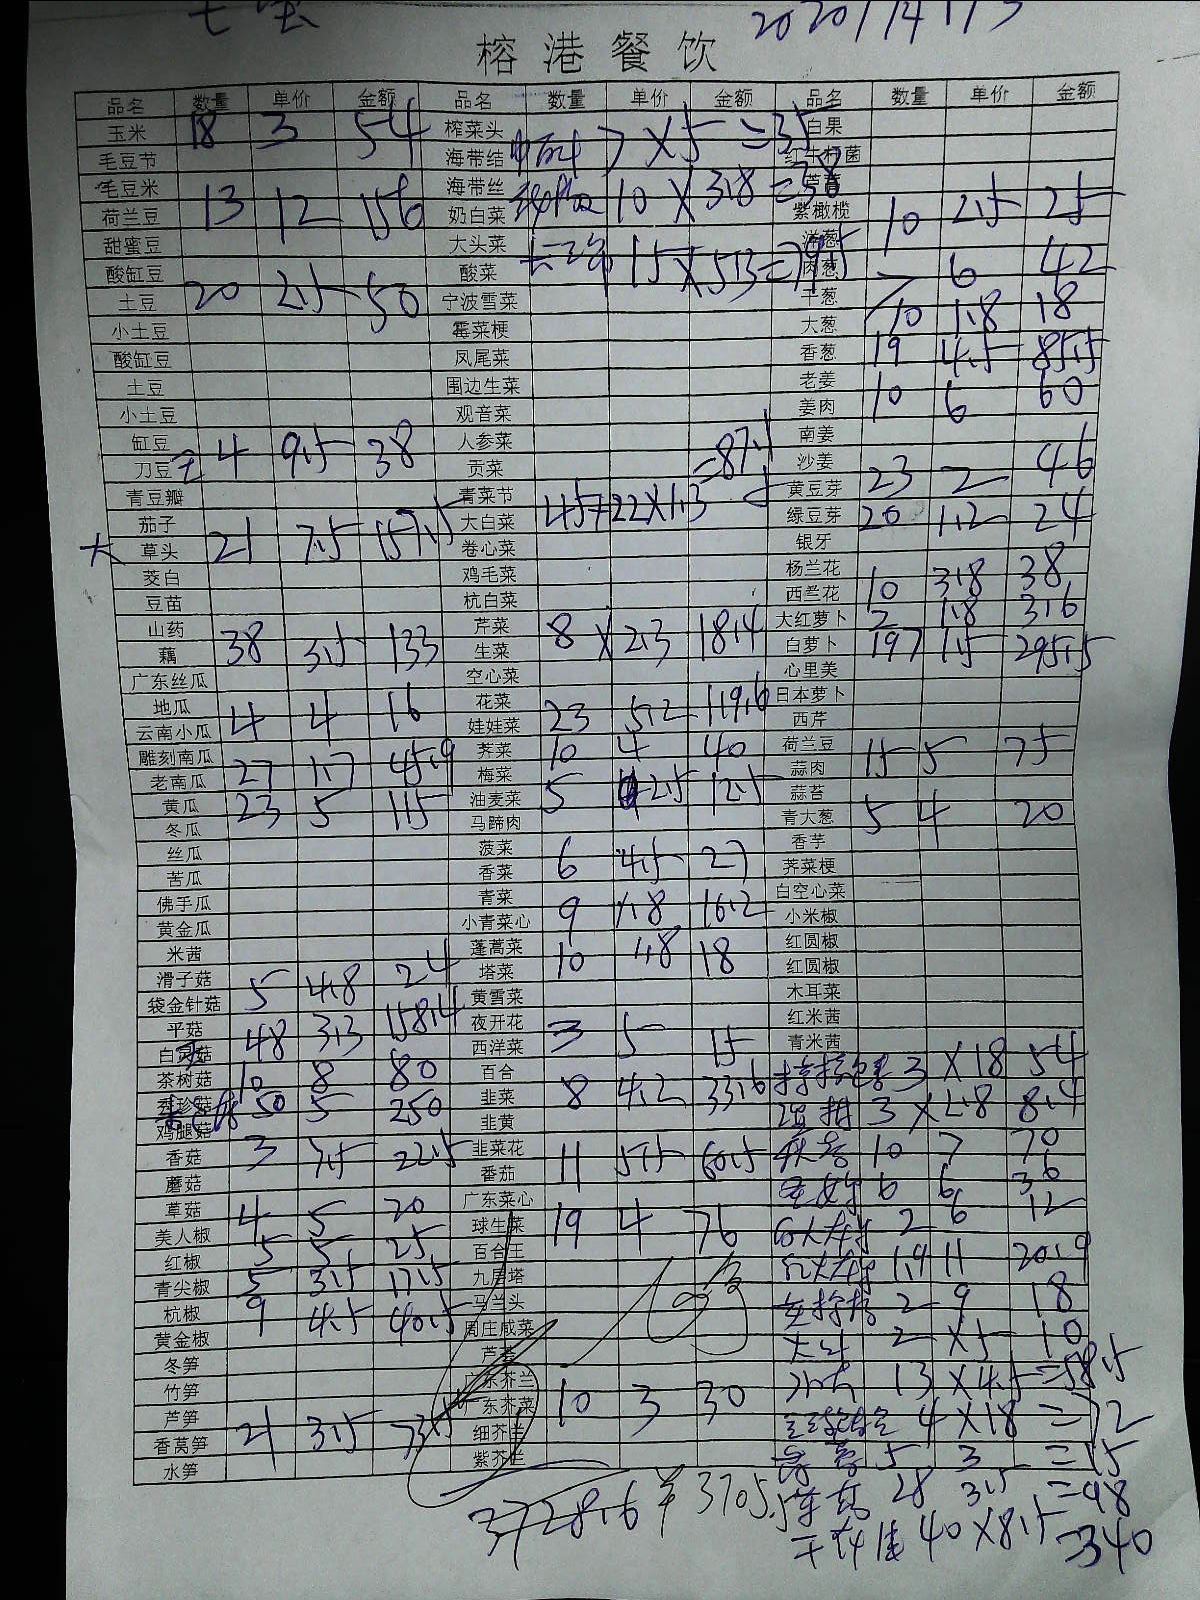 七宝 2020/14/1/3
榕港餐饮
品名 数量 单价 金额 品名 数量 单价 金额 品名 数量 单价 金额
玉米 18 3 54 榨菜头 7×5=35 白果
毛豆节 海带结
毛豆米 13 12 156 海带丝 10×3.8=38
荷兰豆 奶白菜 紫橄榄 10 2.5 25
甜蜜豆 大头菜 15×5.3=79.5 洋葱
酸缸豆 20 2.5 50 酸菜 肉葱 7 6 42
土豆 宁波雪菜 干葱 10 1.8 18
小土豆 霉菜梗 大葱
酸缸豆 凤尾菜 香葱 19 4.5 85.5
土豆 围边生菜 老姜 10 6 60
小土豆 观音菜 姜肉
缸豆 4 9.5 38 人参菜 南姜
刀豆 贡菜 =87.1 沙姜
青豆瓣 青菜节 45+22×1.3 黄豆芽 23 2 46
茄子 21 7.5 157.5 大白菜 绿豆芽 20 1.2 24
草头 卷心菜 银牙
茭白 鸡毛菜 杨兰花 10 3.8 38
豆苗 杭白菜 西兰花
山药 38 3.5 133 芹菜 8×2.3 18.4 大红萝卜 2 1.8 3.6
藕 生菜 白萝卜 197 1.5 295.5
广东丝瓜 空心菜 心里美
地瓜 4 4 16 花菜 23 5.2 119.6 日本萝卜
云南小瓜 娃娃菜 西芹
雕刻南瓜 27 1.7 45.9 荠菜 10 4 40 荷兰豆 15 5 75
老南瓜 梅菜 5 2.5 12.5 蒜肉
黄瓜 23 5 115 油麦菜 蒜苔
冬瓜 马蹄肉 青大葱 5 4 20
丝瓜 菠菜 6 4.5 27 香芋
苦瓜 香菜 荠菜梗
佛手瓜 青菜 9 1.8 16.2 白空心菜
黄金瓜 小青菜心 小米椒
米茜 蓬蒿菜 10 1.8 18 红圆椒
滑子菇 5 4.8 24 塔菜 红圆椒
袋金针菇 黄雪菜 木耳菜
平菇 48 3.3 158.4 夜开花 3 5 15 红米茜
白灵菇 西洋菜 青米茜
茶树菇 10 8 80 百合 3×18 54
秀珍菇 50 5 250 韭菜 8 4.2 33.6 3×2.8 8.4
鸡腿菇 韭黄
香菇 3 7.5 22.5 韭菜花 11 5.5 60.5 10 7 70
蘑菇 番茄 6 6 36
草菇 4 5 20 广东菜心 2 6 12
美人椒 球生菜 19 4 76
红椒 5 5 25 百合王 1.9 11 20.9
青尖椒 5 3.5 17.5 九层塔 2 9 18
杭椒 9 4.5 40.5 马兰头
黄金椒 周庄咸菜 2×5 10
冬笋 芦荟
竹笋 广东芥兰 10 3 30 13×4.5=58.5
芦笋 广东芥菜 4×18=72
香莴笋 21 3.5 73.5 细芥兰 5 3=15
水笋 紫芥兰 28 3.5=98
3728.6 ¥3705.5 40×8.5=340